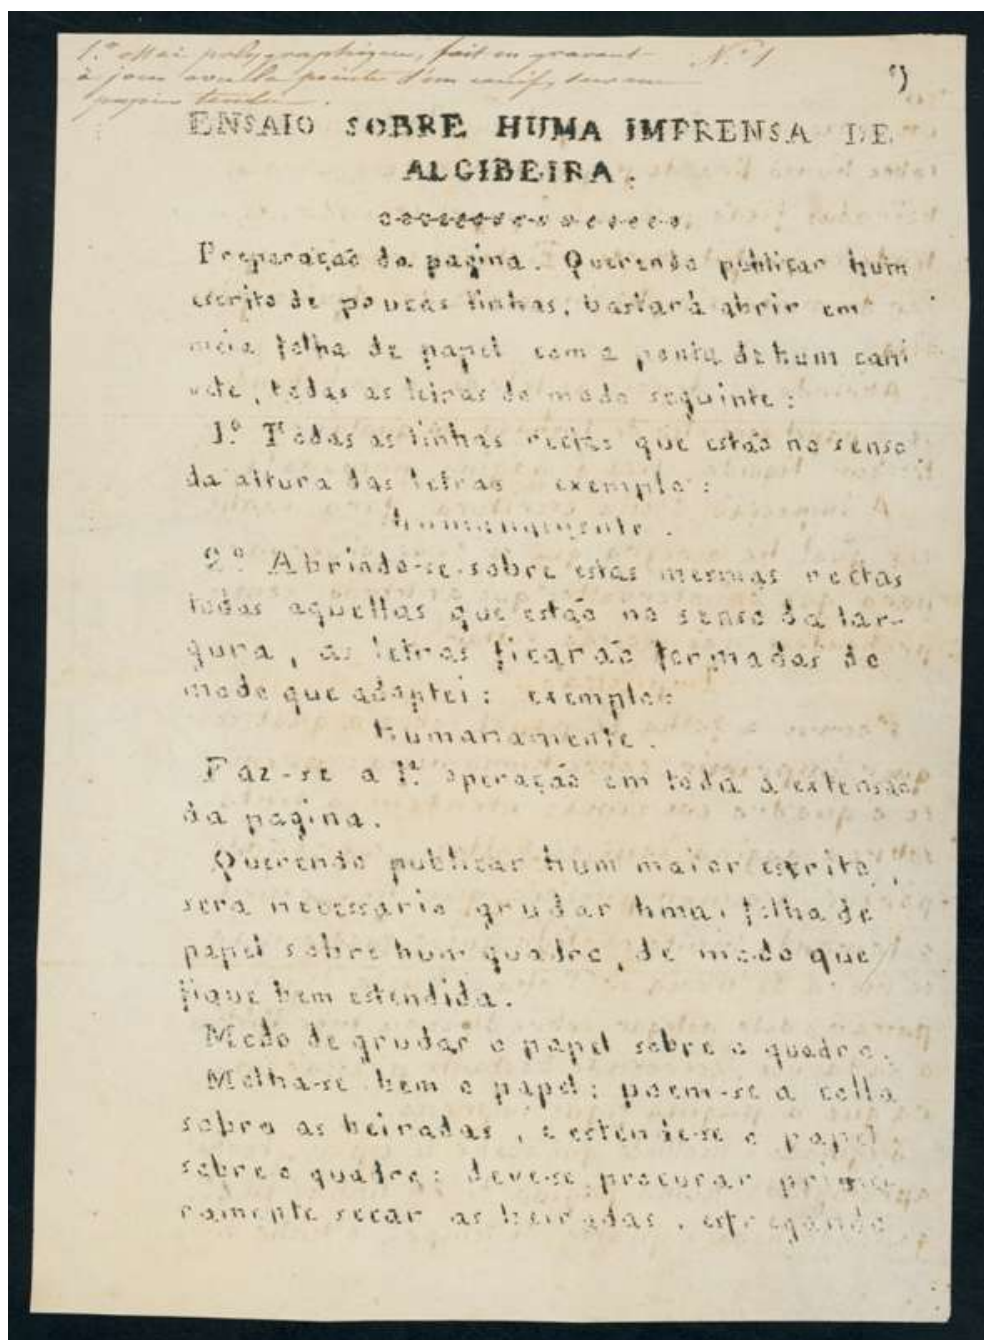 1.er essai polygraphique, fait en gravant N.o 1
à jour avec la pointe d'un canif, sur un
papier tendu.
9
ENSAIO SOBRE HUMA IMPRENSA DE
ALGIBEIRA.
Preparação da pagina. Querendo publicar hum
escrito de poucas linhas, bastará abrir em
meia folha de papel com a ponta de hum cani
vete, todas as letras do modo seguinte:
1.º Todas as linhas rectas que estão no senso
da altura das letras exemplo:
humanamente.
2.º Abrindo-se sobre estas mesmas rectas
todas aquellas que estão no senso da lar-
gura, as letras ficarão formadas do
modo que adaptei: exemplo:
humanamente.
Faz-se a 1.ª operação em toda a extensão
da pagina.
Querendo publicar hum maior escrito,
sera necessario grudar huma folha de
papel sobre hum quadro, de modo que
fique bem estendida.
Modo de grudar o papel sobre o quadro.
Molha-se bem o papel: poem-se a colla
sobro as beiradas, e estende-se o papel
sobre o quadro: deve-se procurar primei
ramente secar as beiradas, esfregando